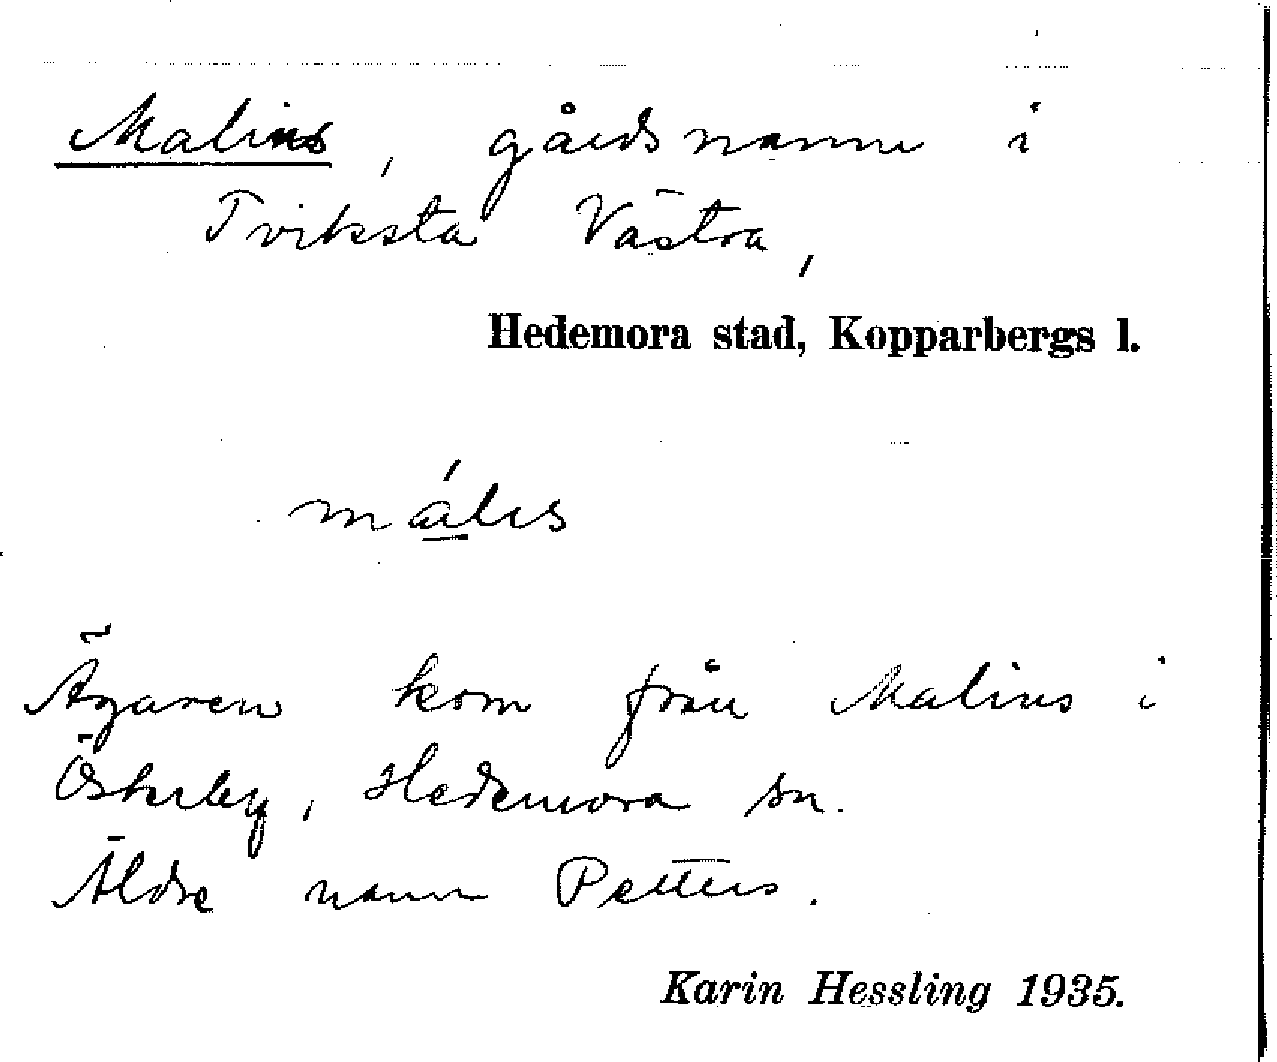 Malins, gårdsnamn i
Tviksta Västra,
Hedemora stad, Kopparbergs l.
málıs
Ägaren kom från Malins i
Österby, Hedemora sn.
Äldre namn Petters.
Karin Hessling 1935.